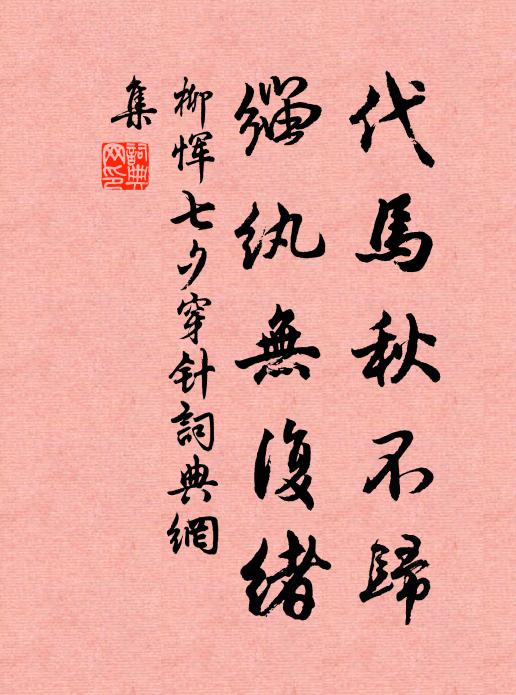 代馬秋不歸
緇紈無復緒
柳惲七夕穿针詞典網
集
詞典
网印